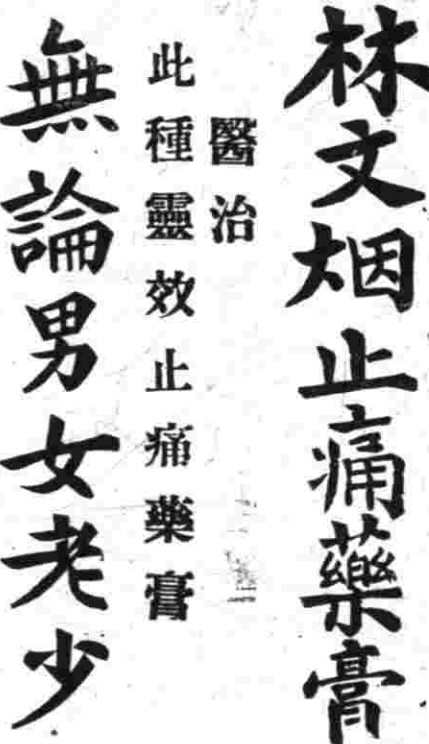 林文烟止痛藥膏
醫治
此種靈效止痛藥膏
無論男女老少